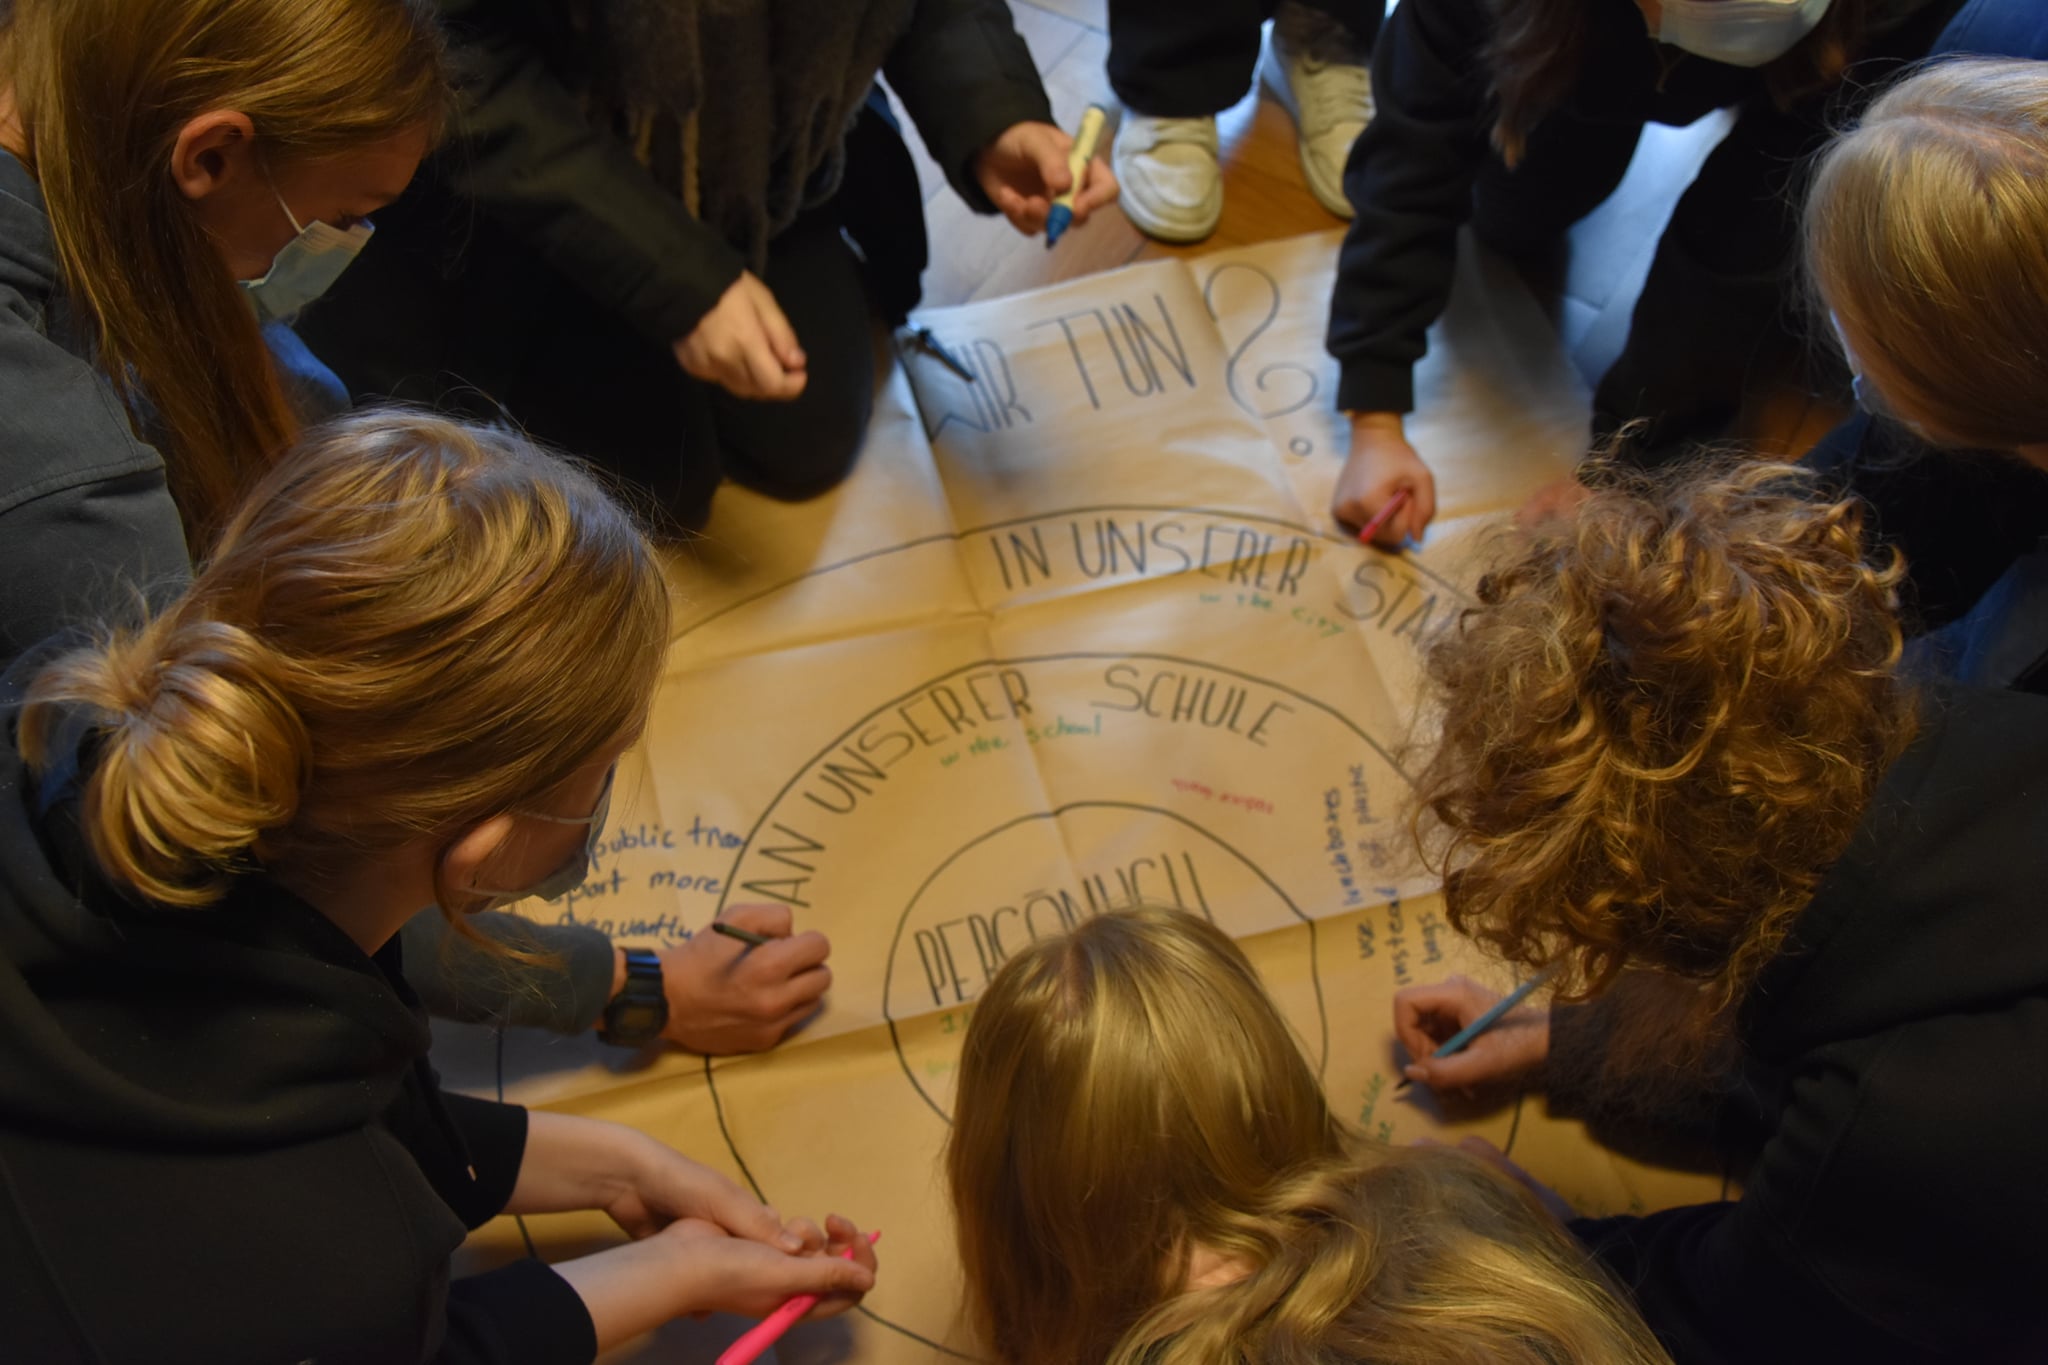 WIR TUN ?
IN UNSERER STA
in the city
AN UNSERER SCHULE
in the school
reduce
PERSÖNLICH
public tran
port more
frequently
use lunchboxes
instead of plastic
bags